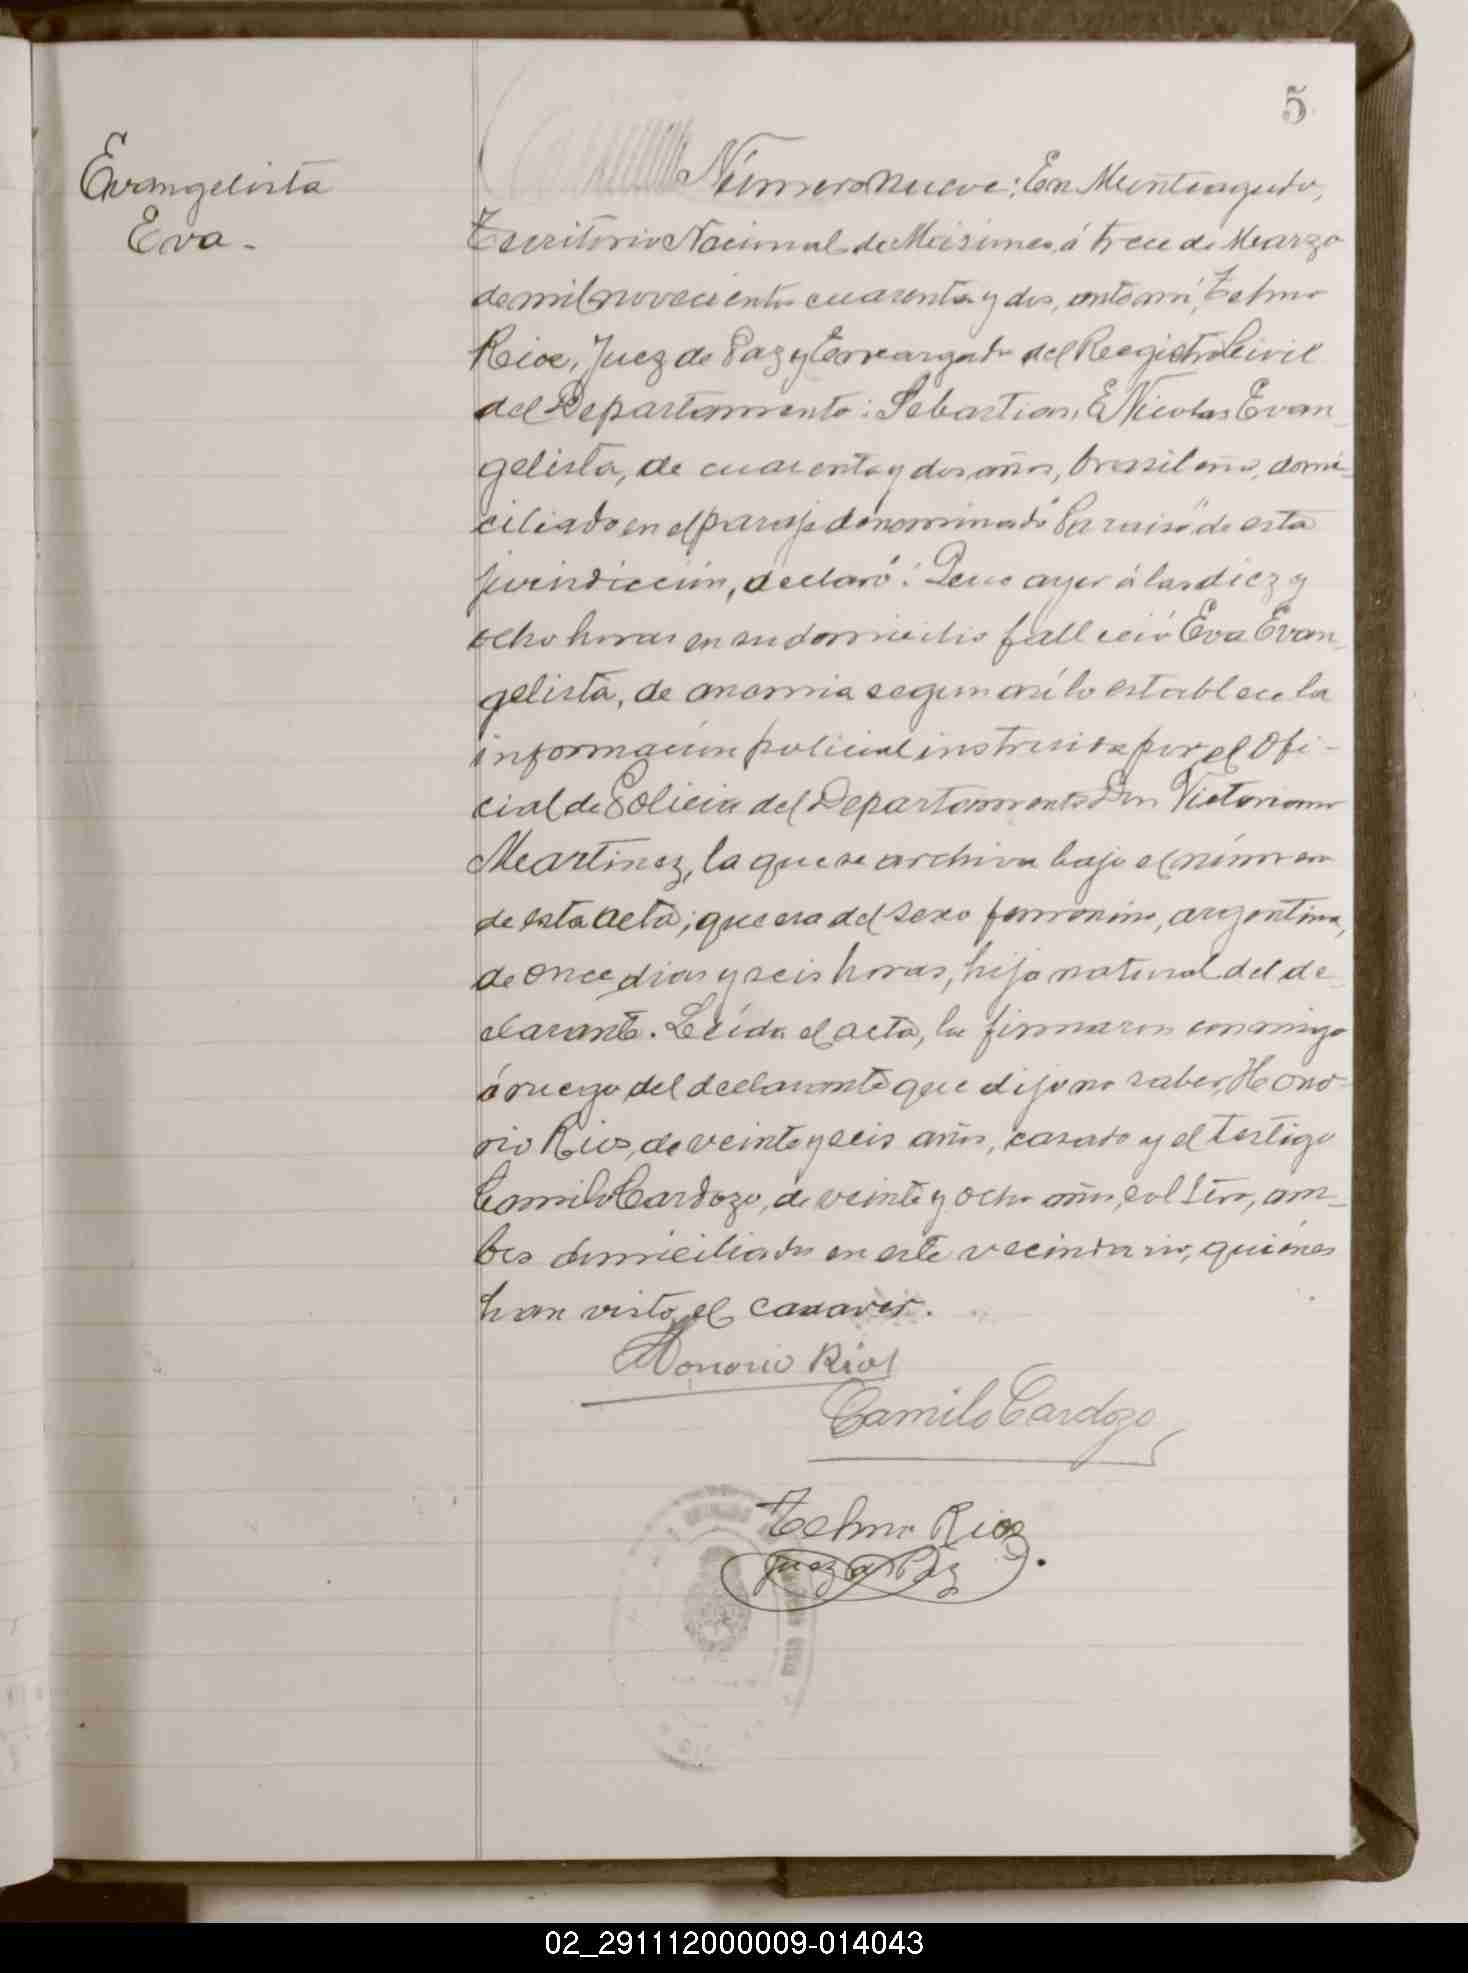 5
Evangelista
Eva.
Número nueve: En Monteagudo,
Territorio Nacional de Misiones, á trece de Marzo
de mil novecientos cuarenta y dos, ante mí, Telmo
Rios, Juez de Paz y Encargado del Registro Civil
del Departamento: Sebastian, Nicolas Evan-
gelista, de cuarenta y dos años, brasileño, domi-
ciliado en el paraje denominado "Paraiso" de esta
jurisdicción, declaró: Que ayer á las diez y
ocho horas en su domicilio falleció Eva Evan-
gelista, de anemia segun así lo establece la
información policial instruida por el Ofi-
cial de Policia del Departamento Don Victoriano
Martinez, la que se archiva bajo el número
de esta acta; que era del sexo femenino, argentina,
de once dias y seis horas, hija natural del de-
clarante. Leída el acta, la firmaron conmigo
á ruego del declarante que dijo no saber, Hono-
rio Rios, de veinte y seis años, casado y el testigo
Camilo Cardozo, de veinte y ocho años, soltero, am-
bos domiciliados en este vecindario, quiénes
han visto el cadaver.
Honorio Rios
Camilo Cardozo
Telmo Rios
Juez de Paz
02_291112000009-014043